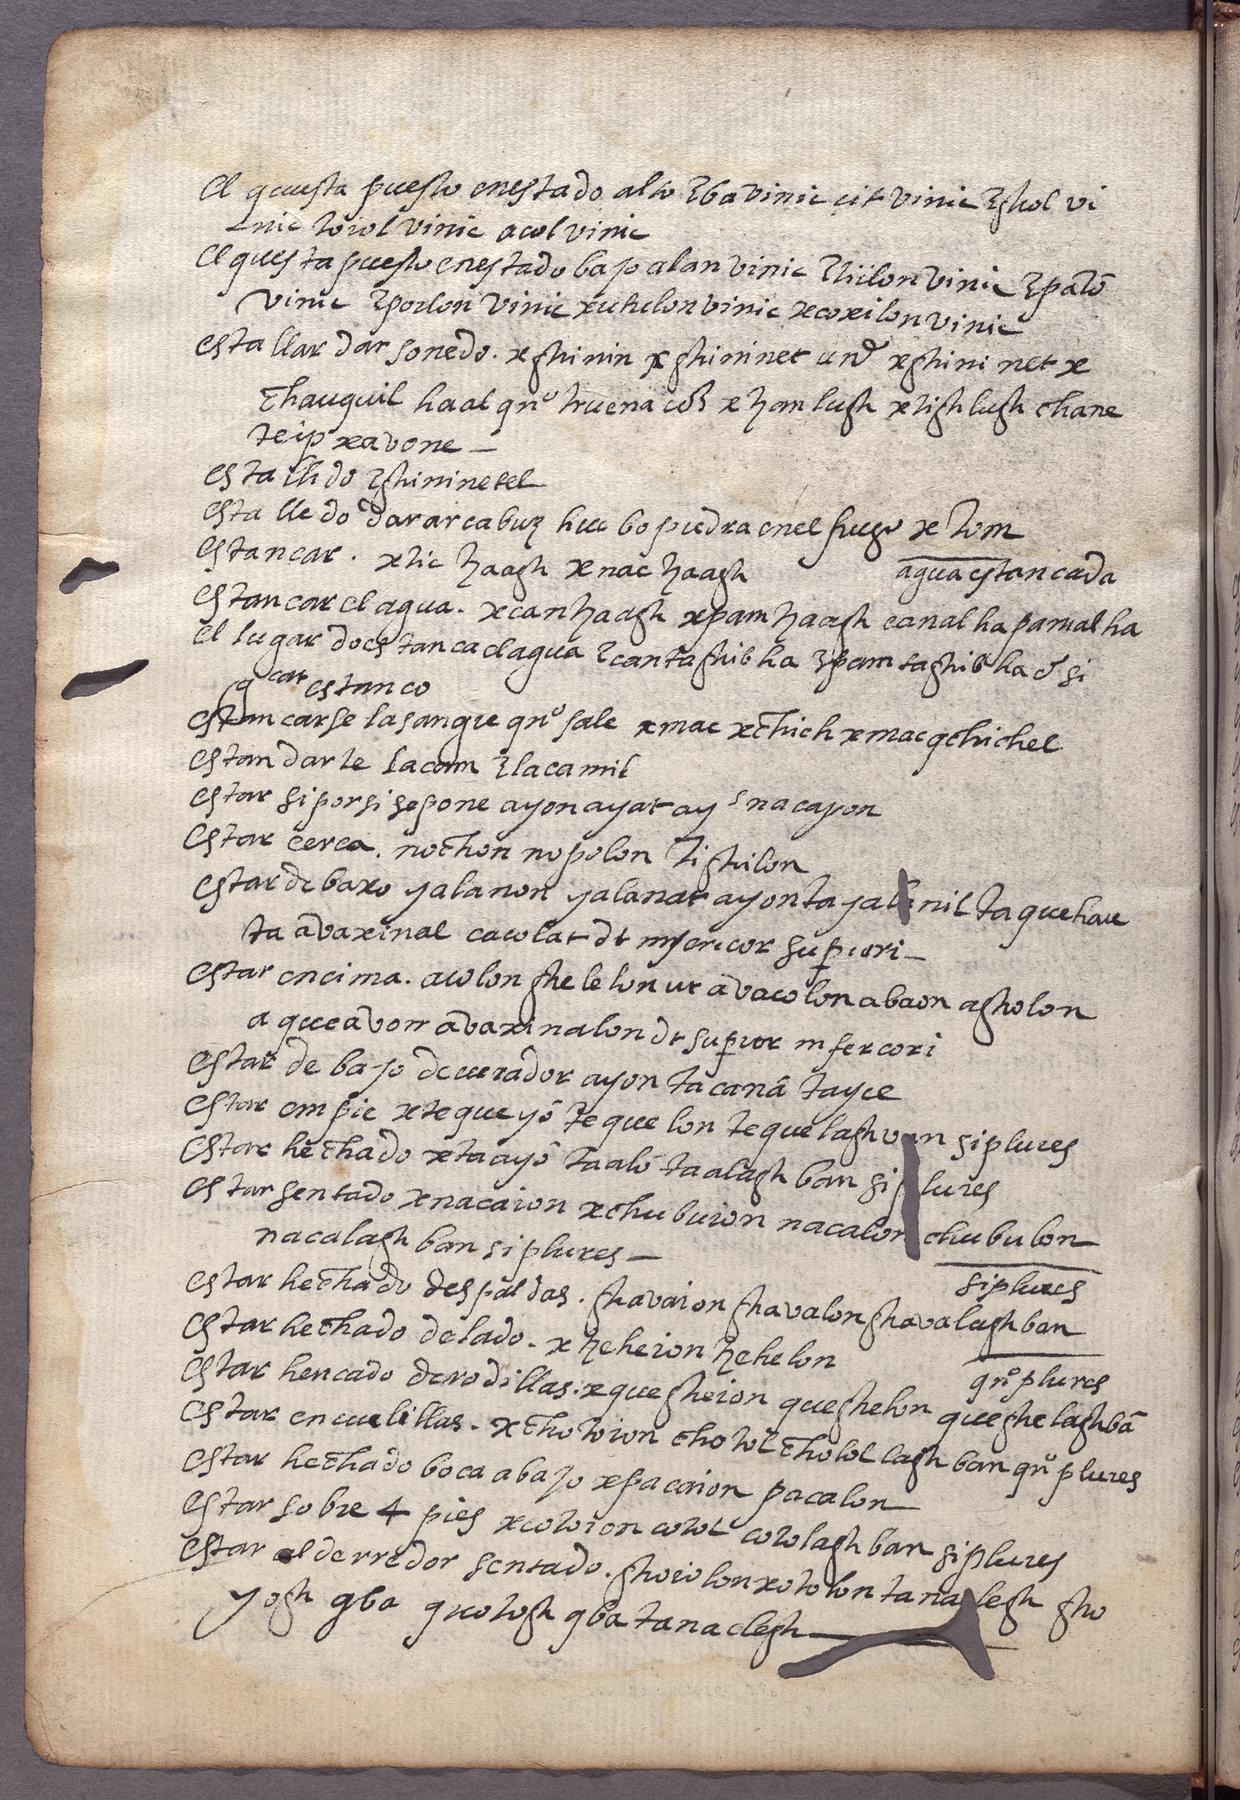 el questa puesto enestado alto Ꜫba vinic çit vinic Ꜫghol vi
nic toiol vinic acol vinic
el questa puesto enestado bajo alan vinic Ꜫtiilon vinic Ꜫpatõ
vinic Ꜫpoilon vinic xutulon vinic xcoxilon vinic
estallar dar sonedo. xghinin xghininet xghini net x
chauquil haal qnº truena xham lugh xtigh lugh chane
teip xavone
estallido Ꜫghininetel
estalledo dar arcabuz huebo piedra enel fuego xtom
estancar. xtic haagh xnac haagh agua estancada
estancar el agua. xcan haagh xpam haagh canal ha pamal ha
el lugar do estanca el agua Ꜫcantaghib ha Ꜫpamtaghib ha si
estanco
estancarse la sangre qnº sale xmac xchich xmac qchichel
estandarte lacam Ꜫlacamil
estar si por si se pone ayon ayat ay nacayon
estar cerca. nochon nopolon tighilon
estar de baxo yalanon yalanat ayon ta yalanil ta quehau
ta avaxinal cacolat dt superiori
estar encima. acolon ghelelon ut avacolon abaon agholon
a queavon avaxinalon dt superior inferiori
estar de bajo de enrador ayon ta canã tayce
estar empie xtequeyõ tequelon tequelagh van si plures
estar hechado xtaayõ taalõ taalagh ban si plures
estar sentado xnacaion xchubuion nacalon chubulon
nacalagh ban si plures
si plures
estar hechado despaldas. ghavaion ghavalon ghavalagh ban
estar hechado de lado. xheheion hehelon
qnº plures
estar hencado de rodillas. xquegheion queghelon queghelagh bã
estar encuclillas. xchotoion chotol chotol lagh ban qnº plures
estar hechado boca abajo xpacaion pacalon
estar sobre 4 pies xcotoion cotol cotolagh ban si plures
estar alderredor sentado. ghoiolon xotolon tanaclegh gho
yogh qba quotogh qba tanaclegh